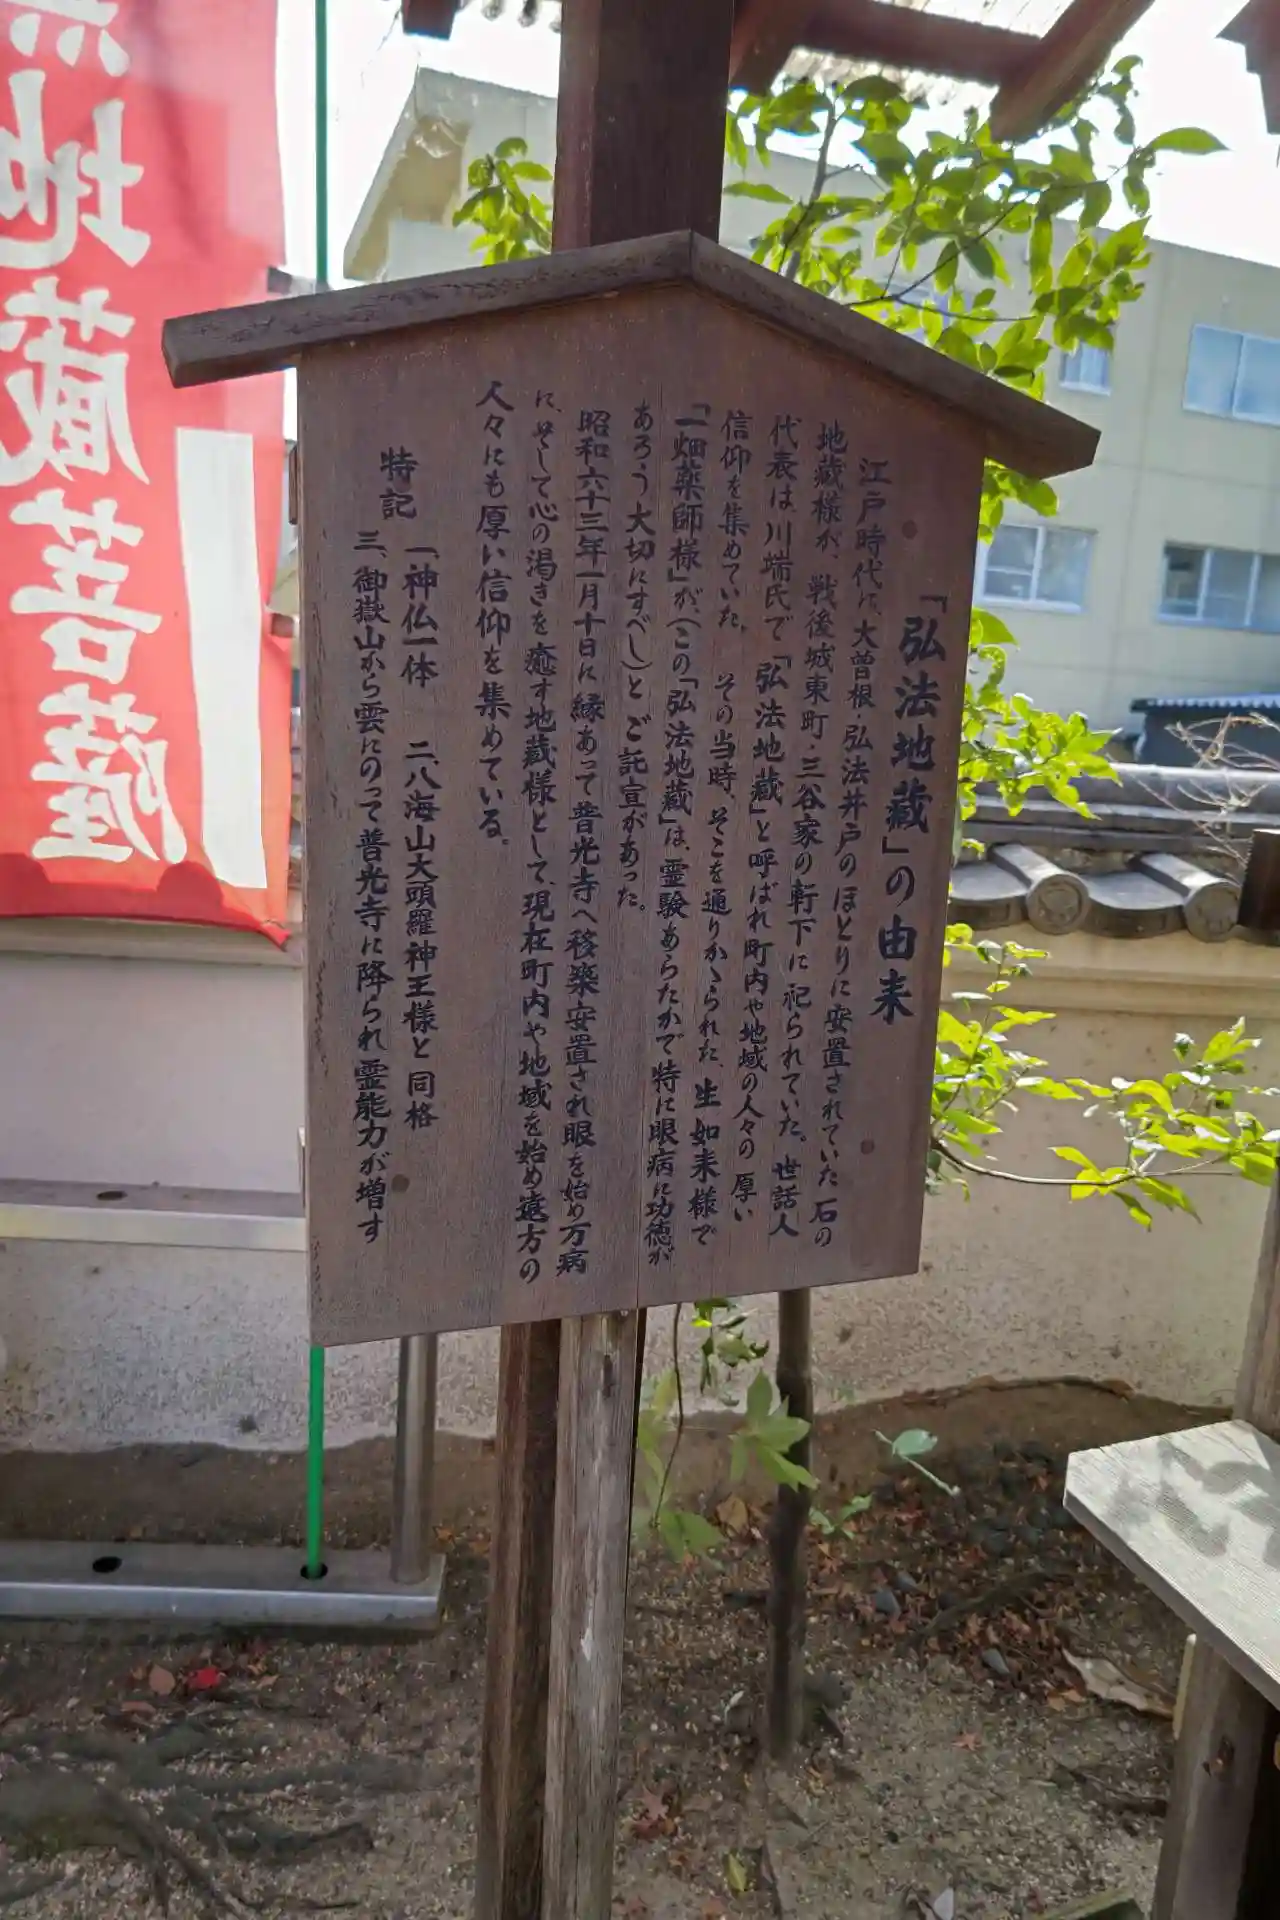 「弘法地蔵」の由来
江戸時代に、大曽根・弘法井戸のほとりに安置されていた石の
地蔵様が、戦後城東町・三谷家の軒下に祀られていた。世話人
代表は川端氏で「弘法地蔵」と呼ばれ町内や地域の人々の厚い
信仰を集めていた。その当時、そこを通りかゝられた、生如来様で
「一畑薬師様」が、(この「弘法地蔵」は、霊験あらたかで特に眼病に功徳が
あろう大切にすべし)とご託宣があった。
昭和六十三年一月十日に縁あって普光寺へ移築安置され眼を始め万病
に、そして心の渇きを癒す地蔵様として、現在町内や地域を始め遠方の
人々にも厚い信仰を集めている。
特記
一、神仏一体 二、八海山大頭羅神王様と同格
三、御嶽山から雲にのって普光寺に降られ霊能力が増す
地蔵菩薩